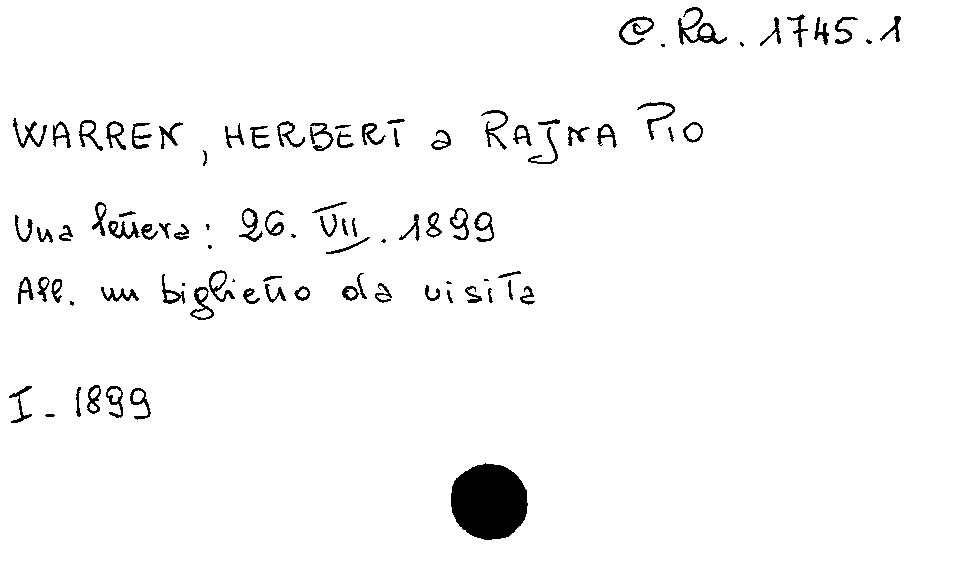 C. Ra. 1745.1
WARREN, HERBERT a RAJNA PIO
Una lettera: 26. VII. 1899
All. un biglietto da visita
I - 1899